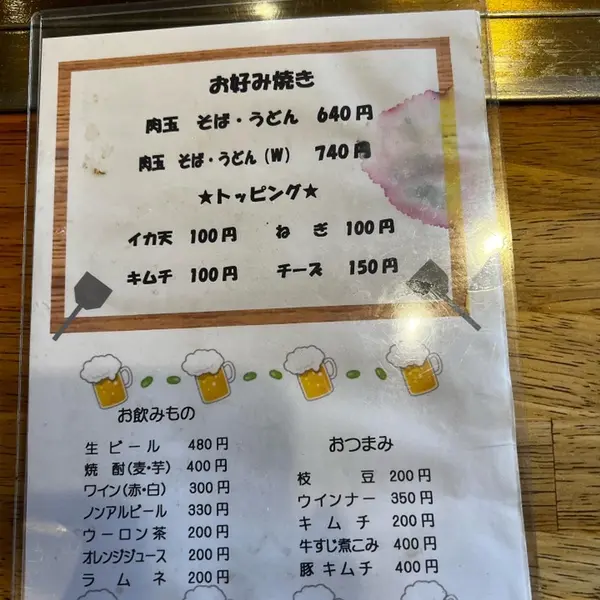 お好み焼き
肉玉 そば・うどん 640円
肉玉 そば・うどん(W) 740円
★トッピング★
イカ天 100円 ねぎ 100円
キムチ 100円 チーズ 150円
お飲みもの
生ビール 480円
焼酎(麦・芋) 400円
ワイン(赤・白) 300円
ノンアルビール 330円
ウーロン茶 200円
オレンジジュース 200円
ラムネ 200円
おつまみ
枝豆 200円
ウインナー 350円
キムチ 200円
牛すじ煮こみ 400円
豚キムチ 400円